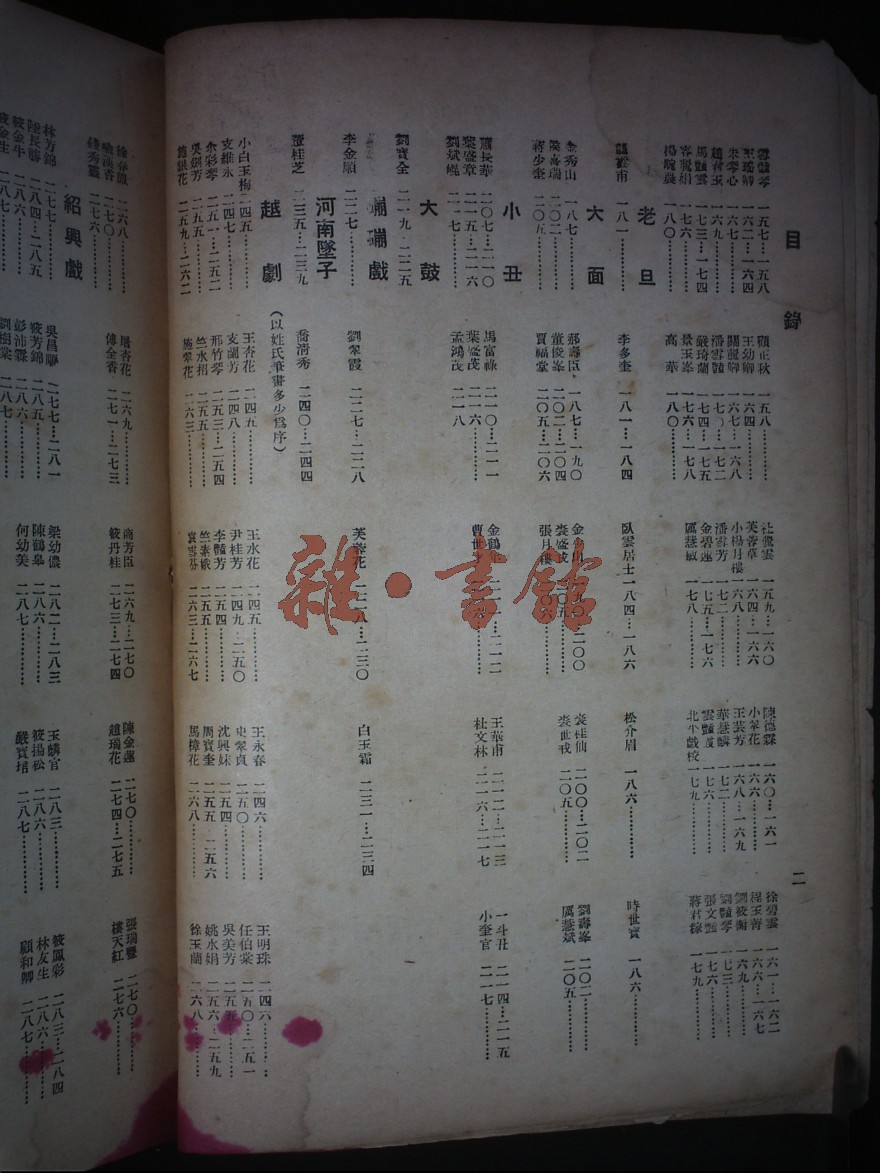 目錄 二
一五七…一五八 顧正秋 一五八 一五九…一六〇 陳德霖 一六〇…一六一 徐碧雲 一六一…一六二
王瑤卿 一六二…一六四 王幼卿 一六四 芙蓉草 一六四…一六六 小翠花 程玉菁 一六六…一六七
朱琴心 一六七 一六七…一六八 小楊月樓 一六八 王芸芳 一六八…一六九 劉筱衡 一六九
趙君玉 一六九 潘雪艷 一七二 潘雪芳 一七二 華慧麟 一七二 劉艷琴 一七三
馬艷雲 一七三…一七四 嚴琦蘭 一七四…一七五 金碧蓮 一七五…一七六 雲艷霞 一七六 張文艷 一七六
一七六 景玉峯 一七六…一七八 厲慧敏 一七八 北平戲校 一七九 蔣君稼 一七九
楊畹農 一八〇 高華 一八〇
老旦
龔雲甫 一八一 李多奎 一八一…一八四 臥雲居士 一八四…一八六 松介眉 一八六 時世寶 一八六
大面
金秀山 一八七 郝壽臣 一八七…一九〇 金少山 一九〇…二〇〇 裘桂仙 二〇〇…二〇二 劉壽峯 二〇二
侯喜瑞 二〇二 董俊峯 二〇二…二〇四 裘盛戎 裘世戎 二〇五 厲慧斌 二〇五
蔣少奎 二〇五 賈福堂 二〇五…二〇六 張月樓
小丑
蕭長華 二〇七…二一〇 馬富祿 二一〇…二一一 金鶴年 二一二 王華甫 二一二…二一三 一斗丑 二一四…二一五
葉盛章 二一五…二一六 葉盛茂 二一六 曹世才 杜文林 二一六…二一七 小奎官 二一七
劉斌崑 二一七 孟鴻茂 二一八
大鼓
劉寶全 二一九…二二五
嘣嘣戲
李金順 二二七 劉翠霞 二二七…二二八 芙蓉花 二二八…二三〇 白玉霜 二三一…二三四
河南墜子
董桂芝 二三五…二三九 喬清秀 二四〇…二四四
越劇（以姓氏筆畫多少爲序）
小白玉梅 二四五 王杏花 二四五 王水花 二四五 王永春 二四六 王明珠 二四六
支維永 二四七 支蘭芳 二四八 尹桂芳 二四九…二五〇 史翠貞 二五〇 任伯棠 二五〇…二五一
余彩琴 二五一…二五二 邢竹琴 二五三…二五四 李艷芳 二五四 沈興妹 二五四 吳美芳 二五五
吳劍芳 二五五 竺水招 二五五 竺素娥 二五五 周寶奎 二五五…二五六 姚水娟 二五六…二五九
施銀花 二五九…二六二 施翠花 二六三 袁雪芬 二六三…二六七 馬樟花 二六八 徐玉蘭 二六八
徐春鳳 二六八 屠杏花 二六九 商芳臣 二六九…二七〇 陳金蓮 二七〇 張瑞豐 二七〇
二七〇 傅全香 二七一…二七三 筱丹桂 二七三…二七四 趙瑞花 二七四…二七五 樓天紅 二七六
錢秀靈 二七六
紹興戲
林芳錦 二七七 吳昌順 二七七…二八一 梁幼儂 二八二…二八三 王麟官 二八三 筱鳳彩 二八三…二八四
陸長勝 二八四…二八五 筱芳錦 二八五 陳鶴皋 二八六 筱揚松 二八六 林友生 二八六
筱金牛 二八六 彭沛霖 二八六 何幼美 二八七 嚴寶琩 二八七 顧和卿 二八七
筱金生 二八七 劉樹棠 二八七
雜·書館